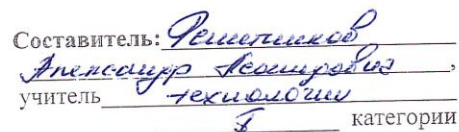 Составитель: Решетников
Александр Леонидович,
учитель технологии
I категории